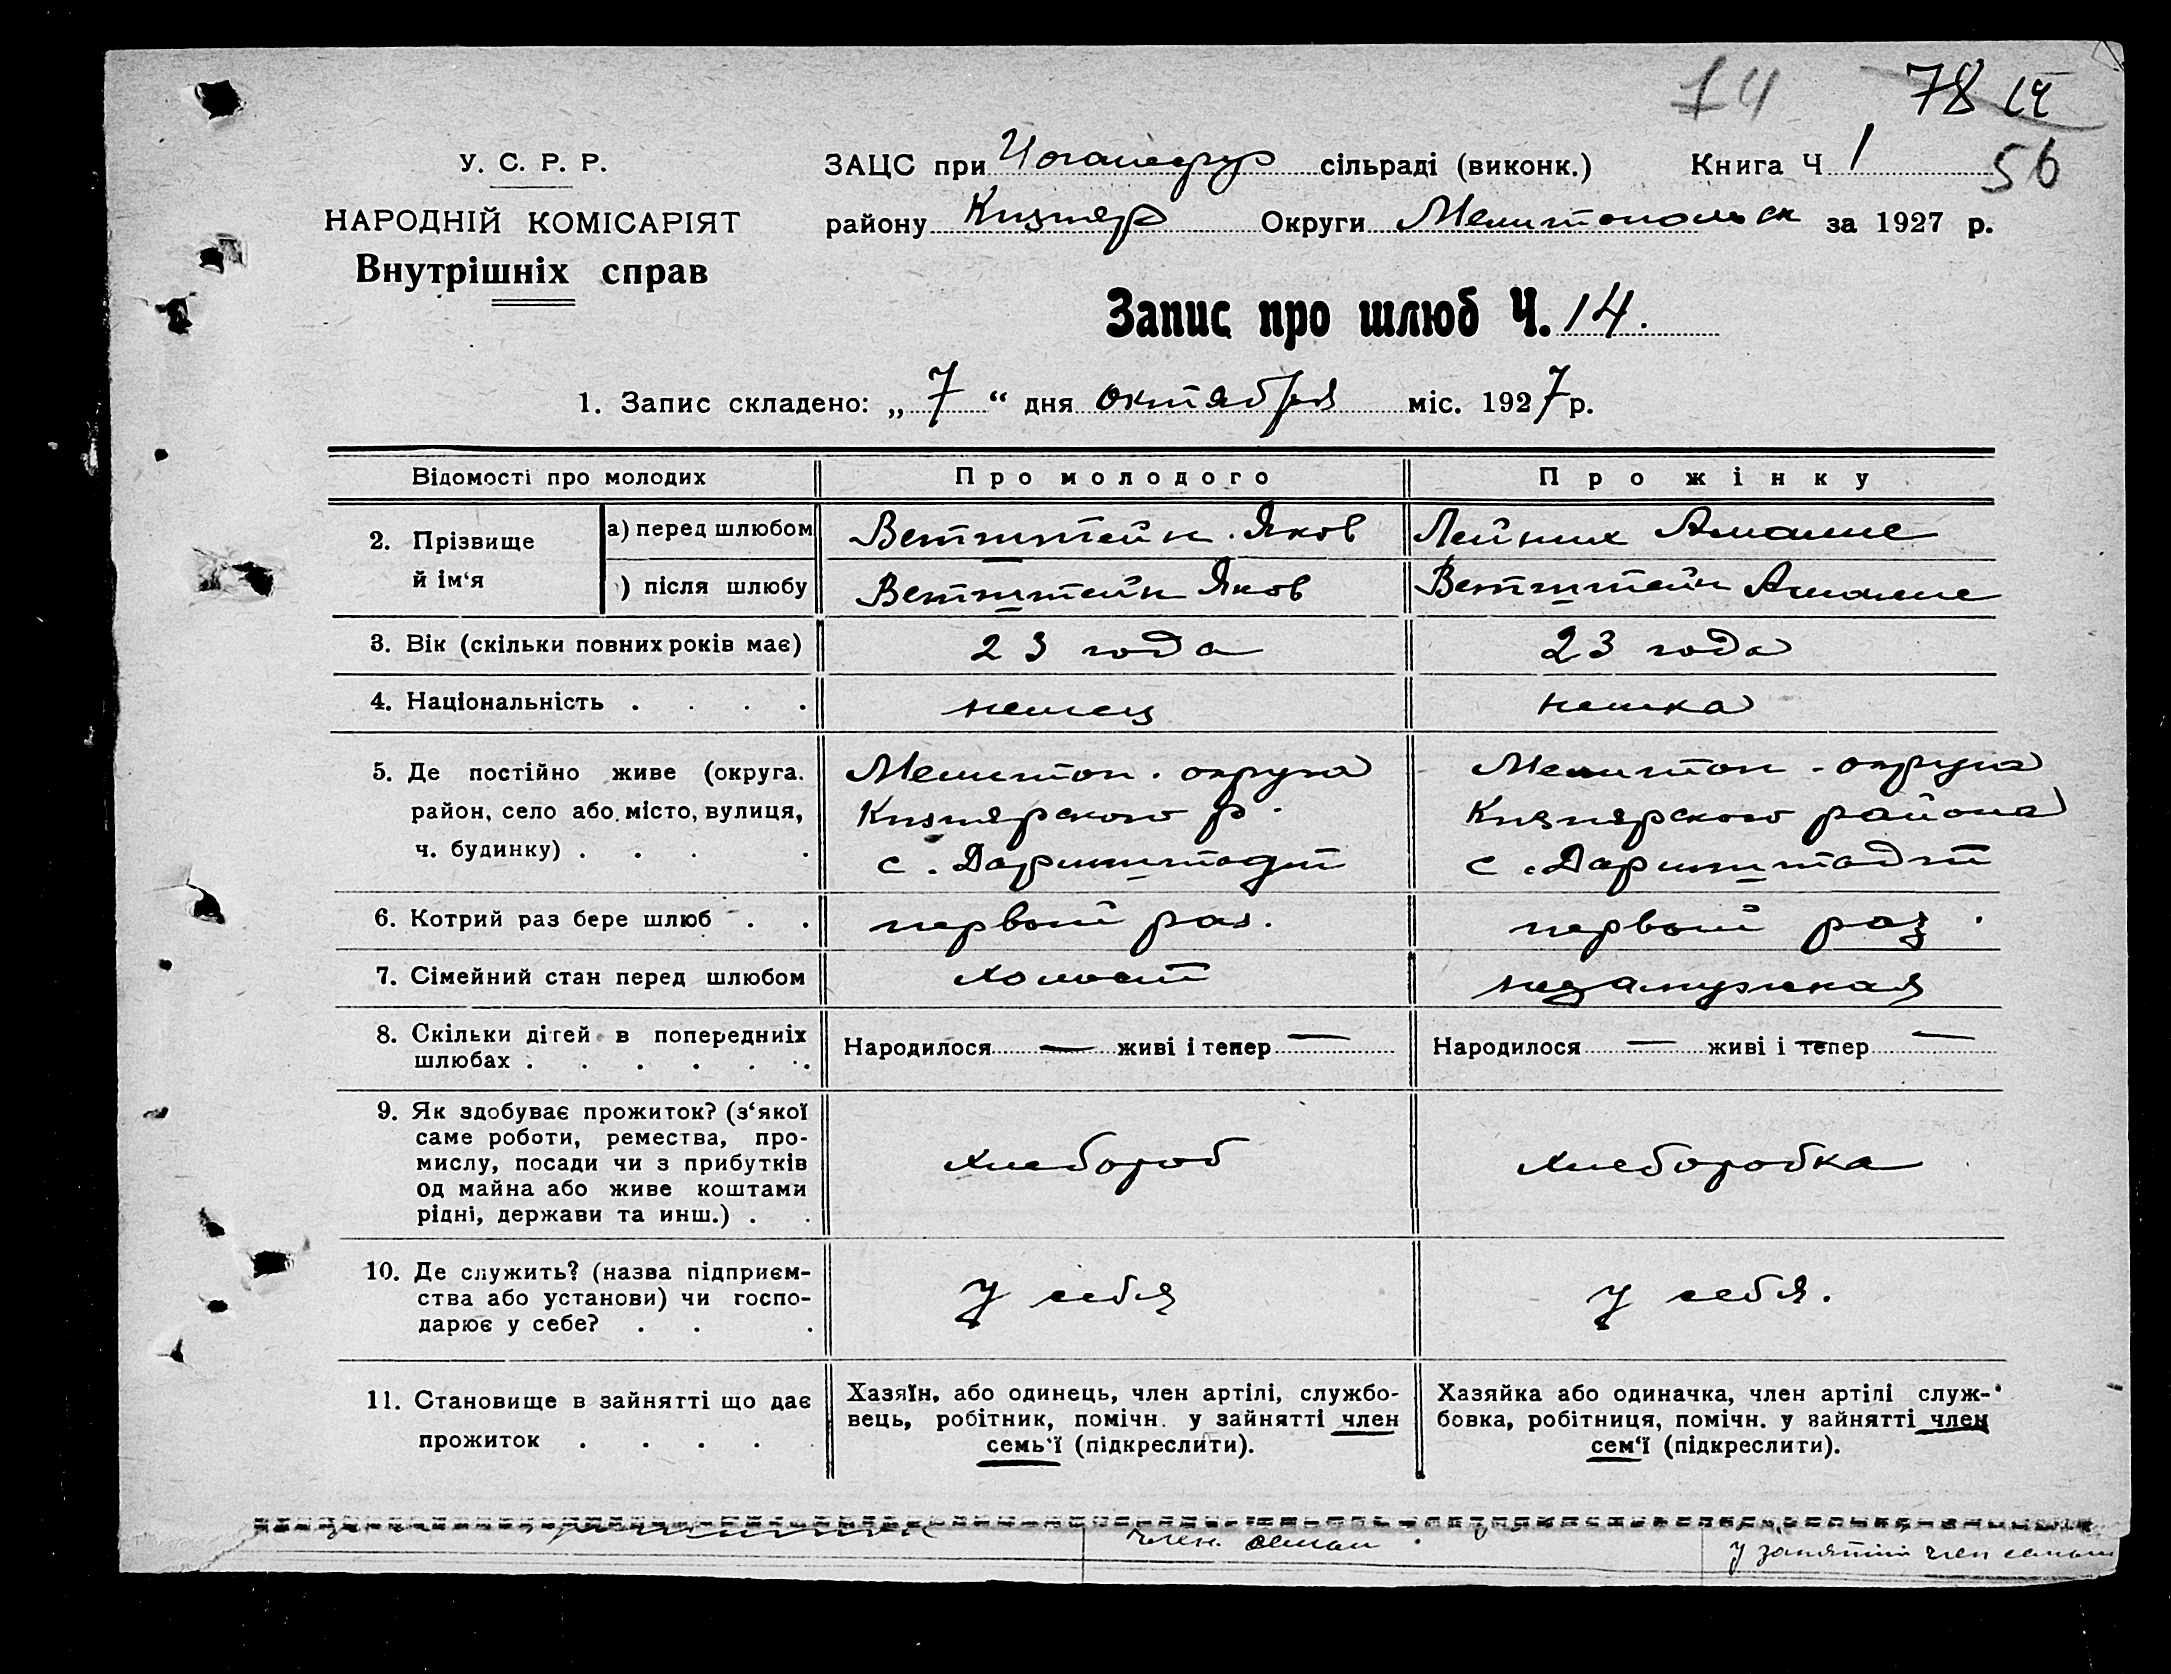 14 78 14
У. С. Р. Р.
ЗАЦС при сільраді (виконк.) Книга Ч 1
56
НАРОДНІЙ КОМІСАРІЯТ
району Кизияр Округи Мелитопольск за 1927 р.
Внутрішніх справ
Запис про шлюб Ч. 14.
1. Запис складено: „ 7 “ дня октября міс. 1927 р.
Відомості про молодих Про молодого Про жінку
2. Прізвище й ім‘я
а) перед шлюбом Ветштейн Яков Лейних Амалие
) після шлюбу Ветштейн Яков Ветштейн Амалие
3. Вік (скільки повних років має) 23 года 23 года
4. Національність . . . . немец немка
5. Де постійно живе (округа. Мелитоп. округа Мелитоп. округа
район, село або місто, вулиця, Кизиярского р. Кизиярского района
ч. будинку) . . . . с. Дармштадт с. Дармштадт
6. Котрий раз бере шлюб . . первый раз. первый раз.
7. Сімейний стан перед шлюбом холост незамужная
8. Скільки дітей в попередниіх
шлюбах . . . . . . Народилося — живі і тепер — Народилося — живі і тепер —
9. Як здобуває прожиток? (з‘якої
саме роботи, ремества, про-
мислу, посади чи з прибутків хлебороб хлеборобка
од майна або живе коштами
рідні, держави та инш.) . .
10. Де служить? (назва підприєм-
ства або установи) чи госпо- у себя у себя.
дарює у себе? . . .
11. Становище в зайнятті що дає
прожиток . . . . .
Хазяїн, або одинець, член артілі, службо-
вець, робітник, помічн. у зайнятті член
семь‘ї (підкреслити).
Хазяйка або одиначка, член артілі служ-
бовка, робітниця, помічн. у зайнятті член
сем‘ї (підкреслити).
член семьи
у занятии член семьи